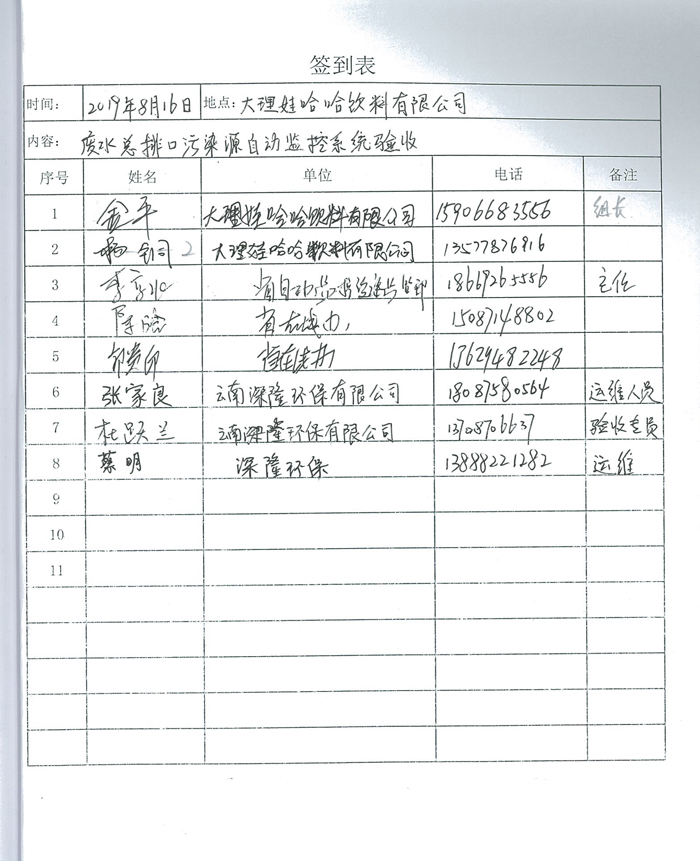 签到表
时间： 2019年8月16日 地点：大理娃哈哈饮料有限公司
内容： 废水总排口污染源自动监控系统验收
序号 姓名 单位 电话 备注
1 金平 大理娃哈哈饮料有限公司 15906683556 组长
2 大理娃哈哈饮料有限公司 13577876916
3 18669265556 主任
4 陈晗 省在线办 15087148802
5 省在线办 13629482248
6 张家良 云南深隆环保有限公司 18087580564 运维人员
7 杜跃兰 云南深隆环保有限公司 13708706637 验收专员
8 蔡明 深隆环保 13888221282 运维
9
10
11